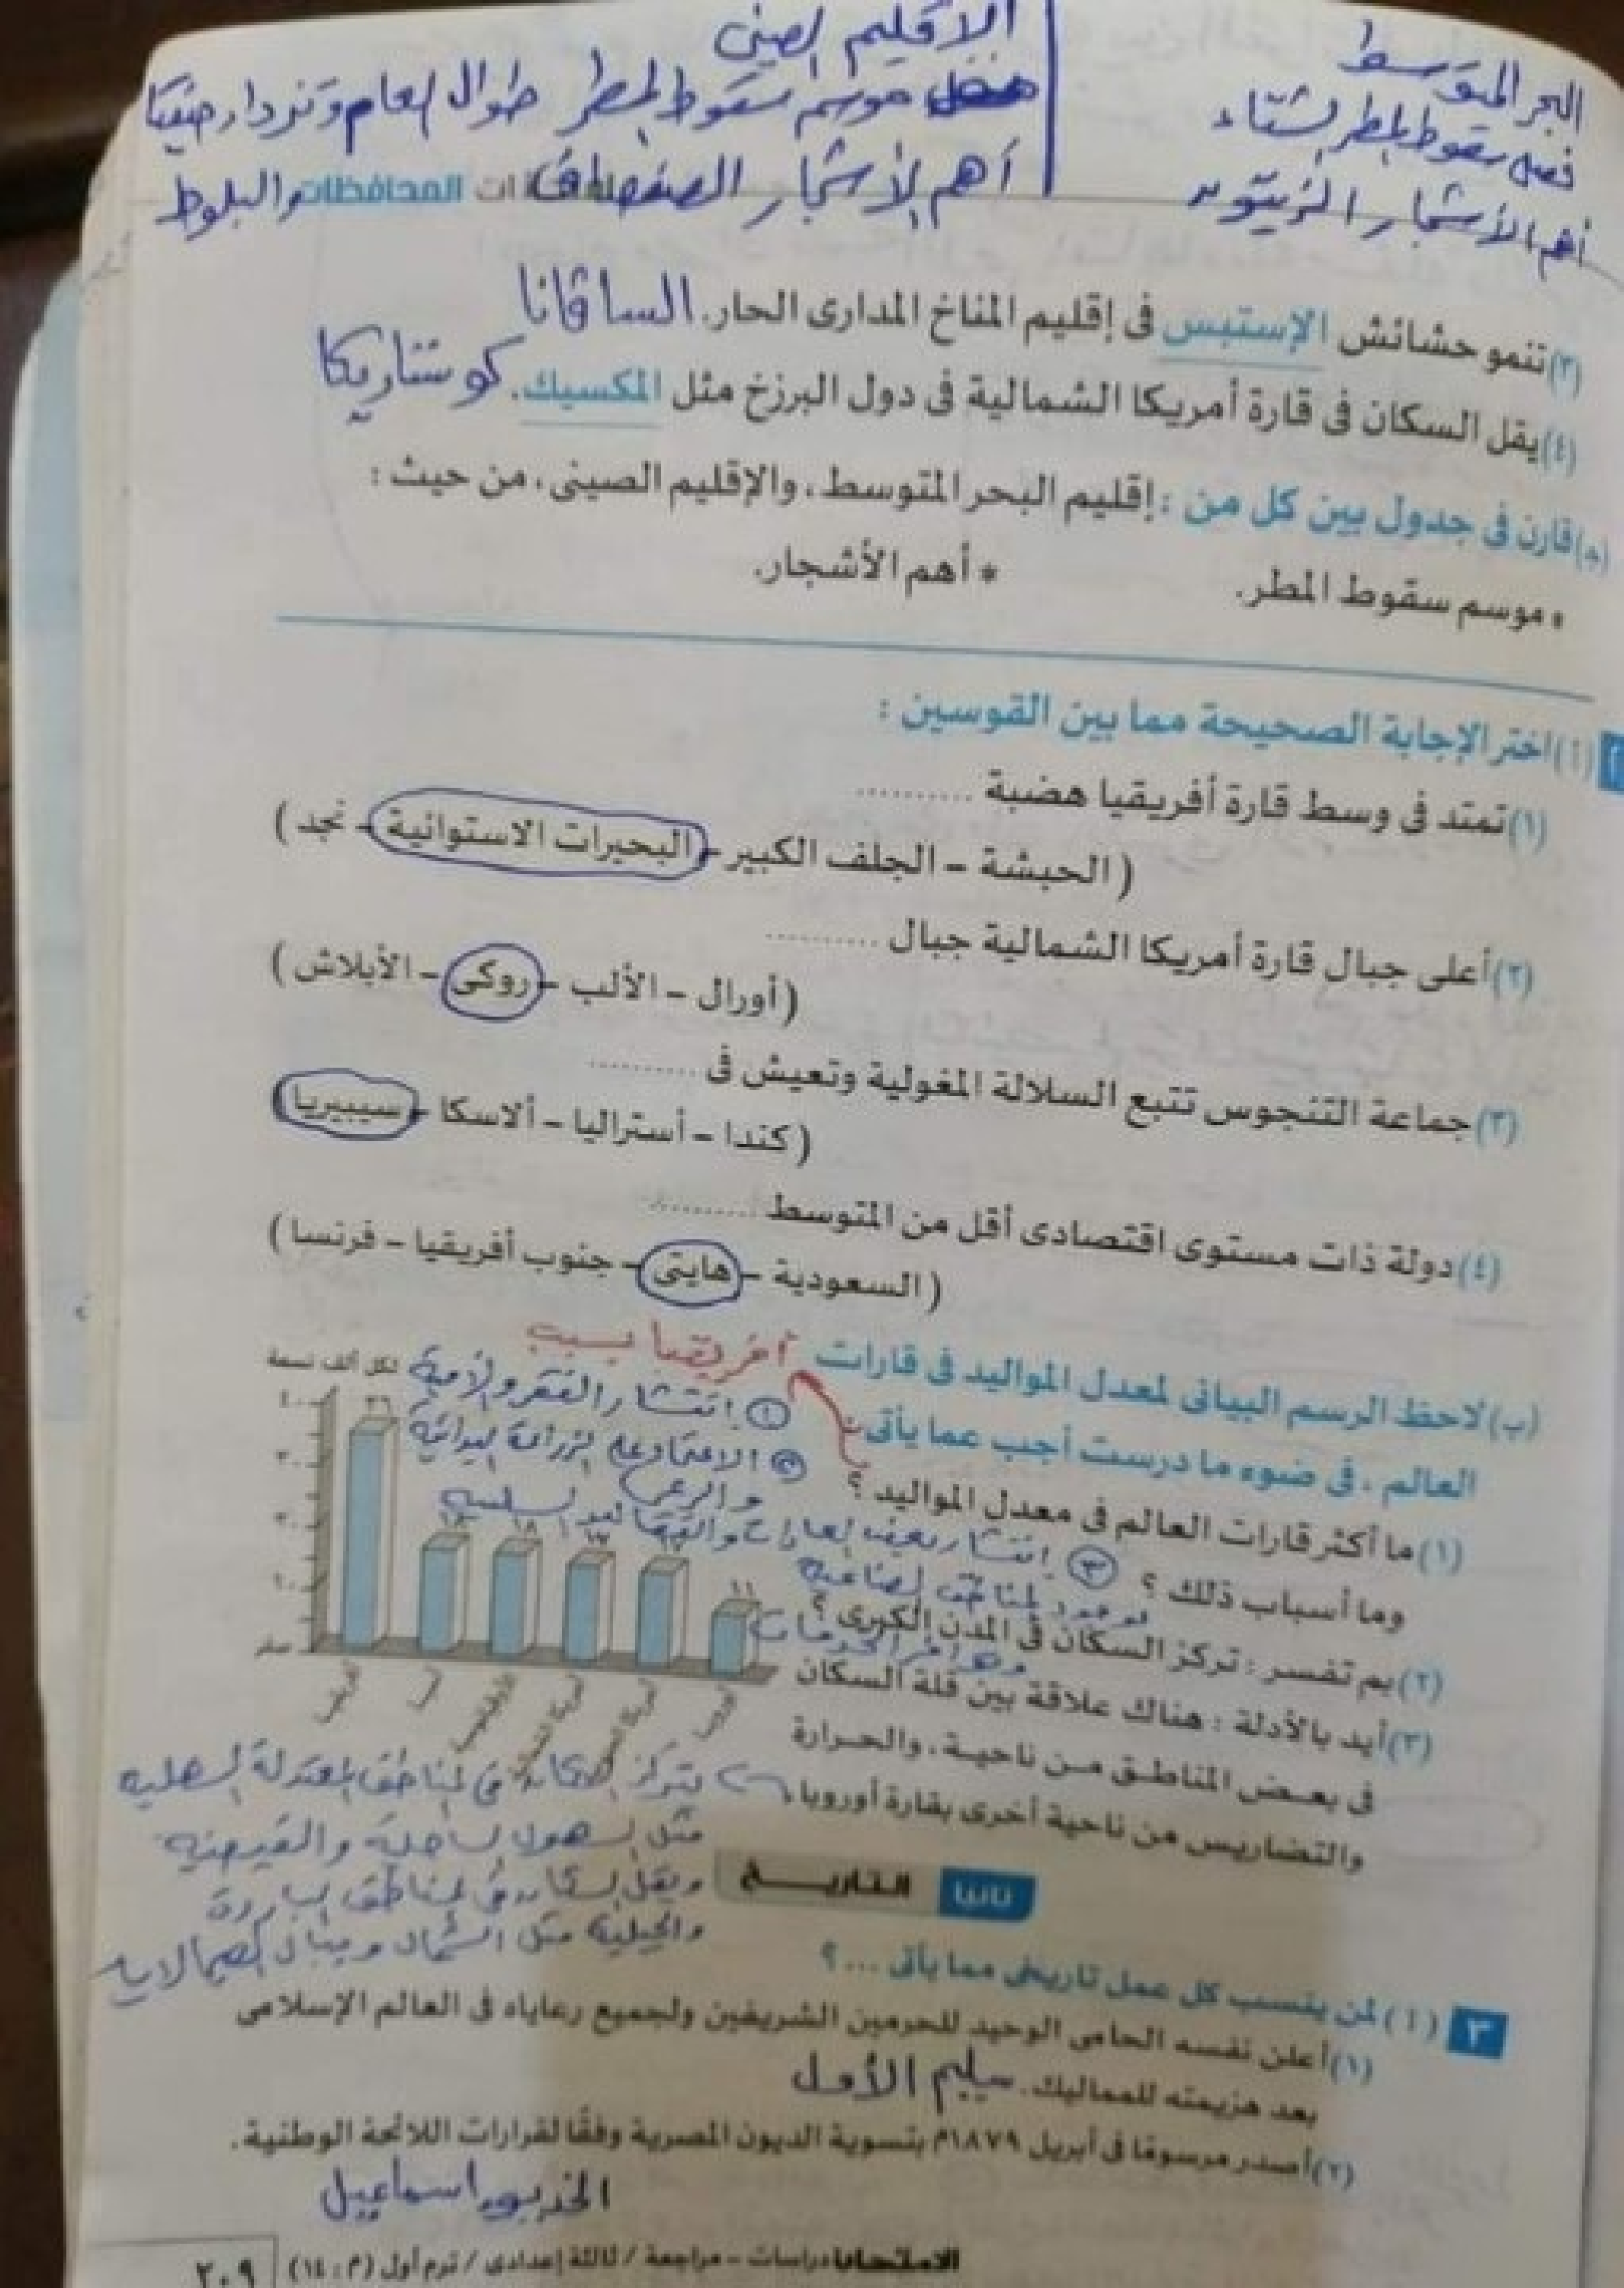 البحر المتوسط
فصل سقوط المطر الشتاء
أهم الأشجار الزيتون
الإقليم الصينى
موسم سقوط المطر طوال العام وتزداد صيفًا
أهم الأشجار الصفصاف والبلوط
المحافظات
(٣) تنمو حشائش الإستبس فى إقليم المناخ المدارى الحار. الساڤانا
(٤) يقل السكان فى قارة أمريكا الشمالية فى دول البرزخ مثل المكسيك. كوستاريكا
(ج) قارن فى جدول بين كل من : إقليم البحر المتوسط، والإقليم الصينى، من حيث :
* موسم سقوط المطر. * أهم الأشجار.
(أ) اختر الإجابة الصحيحة مما بين القوسين :
(١) تمتد فى وسط قارة أفريقيا هضبة ..........
( الحبشة - الجلف الكبير - البحيرات الاستوائية - نجد )
(٢) أعلى جبال قارة أمريكا الشمالية جبال ..........
( أورال - الألب - روكى - الأبلاش )
(٣) جماعة التنجوس تتبع السلالة المغولية وتعيش فى ..........
( كندا - أستراليا - ألاسكا - سيبيريا )
(٤) دولة ذات مستوى اقتصادى أقل من المتوسط ..........
( السعودية - هايتى - جنوب أفريقيا - فرنسا )
(ب) لاحظ الرسم البيانى لمعدل المواليد فى قارات
العالم، فى ضوء ما درست أجب عما يأتى :
أفريقيا بسبب
① انتشار الفقر والأمية
② الاعتماد على الزراعة البدائية
والرعى
③ انتشار بعض العادات والتقاليد السلبية
(١) ما أكثر قارات العالم فى معدل المواليد ؟
وما أسباب ذلك ؟
لوجود المناطق الصناعية
(٢) بم تفسر : تركز السكان فى المدن الكبرى ؟
(٣) أيد بالأدلة : هناك علاقة بين قلة السكان
فى بعض المناطق من ناحية، والحرارة
والتضاريس من ناحية أخرى بقارة أوروبا.
لكل ألف نسمة
٤٠
٣٠
٢٠
١٠
صفر
٣٦
١٨
١١
أفريقيا
آسيا
أوروبا
يتركز السكان فى المناطق المعتدلة السهلية
مثل السهول الساحلية والفيضية
ويقل السكان فى المناطق الباردة
والجبلية مثل الشمال وجبال الهيمالايا
ثانيا التاريخ
٣ (أ) لمن ينسب كل عمل تاريخى مما يأتى ...؟
(١) أعلن نفسه الحامى الوحيد للحرمين الشريفين ولجميع رعاياه فى العالم الإسلامى
بعد هزيمته للمماليك. سليم الأول
(٢) أصدر مرسومًا فى أبريل ١٨٧٩م بتسوية الديون المصرية وفقًا لقرارات اللائحة الوطنية.
الخديو اسماعيل
الامتحان دراسات - مراجعة / ثالثة إعدادى / ترم أول (م : ١٤) ٢٠٩